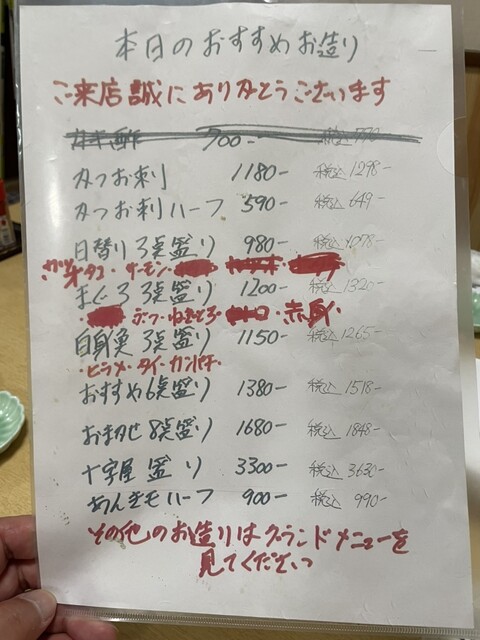 本日のおすすめお造り
ご来店誠にありがとうございます
カキ酢 700- 税込 770-
かつお刺 1180- 税込 1298-
かつお刺ハーフ 590- 税込 649-
日替り3点盛り 980- 税込 1078-
カツオ・タコ・サーモン・
まぐろ3点盛り 1200- 税込 1320-
・ぶつ・ねぎとろ・赤身・
白身魚3点盛り 1150- 税込 1265-
・ヒラメ・タイ・カンパチ・
おすすめ6点盛り 1380- 税込 1518-
おまかせ8点盛り 1680- 税込 1848-
十字屋盛り 3300- 税込 3630-
あんきもハーフ 900- 税込 990-
その他のお造りはグランドメニューを
見てください